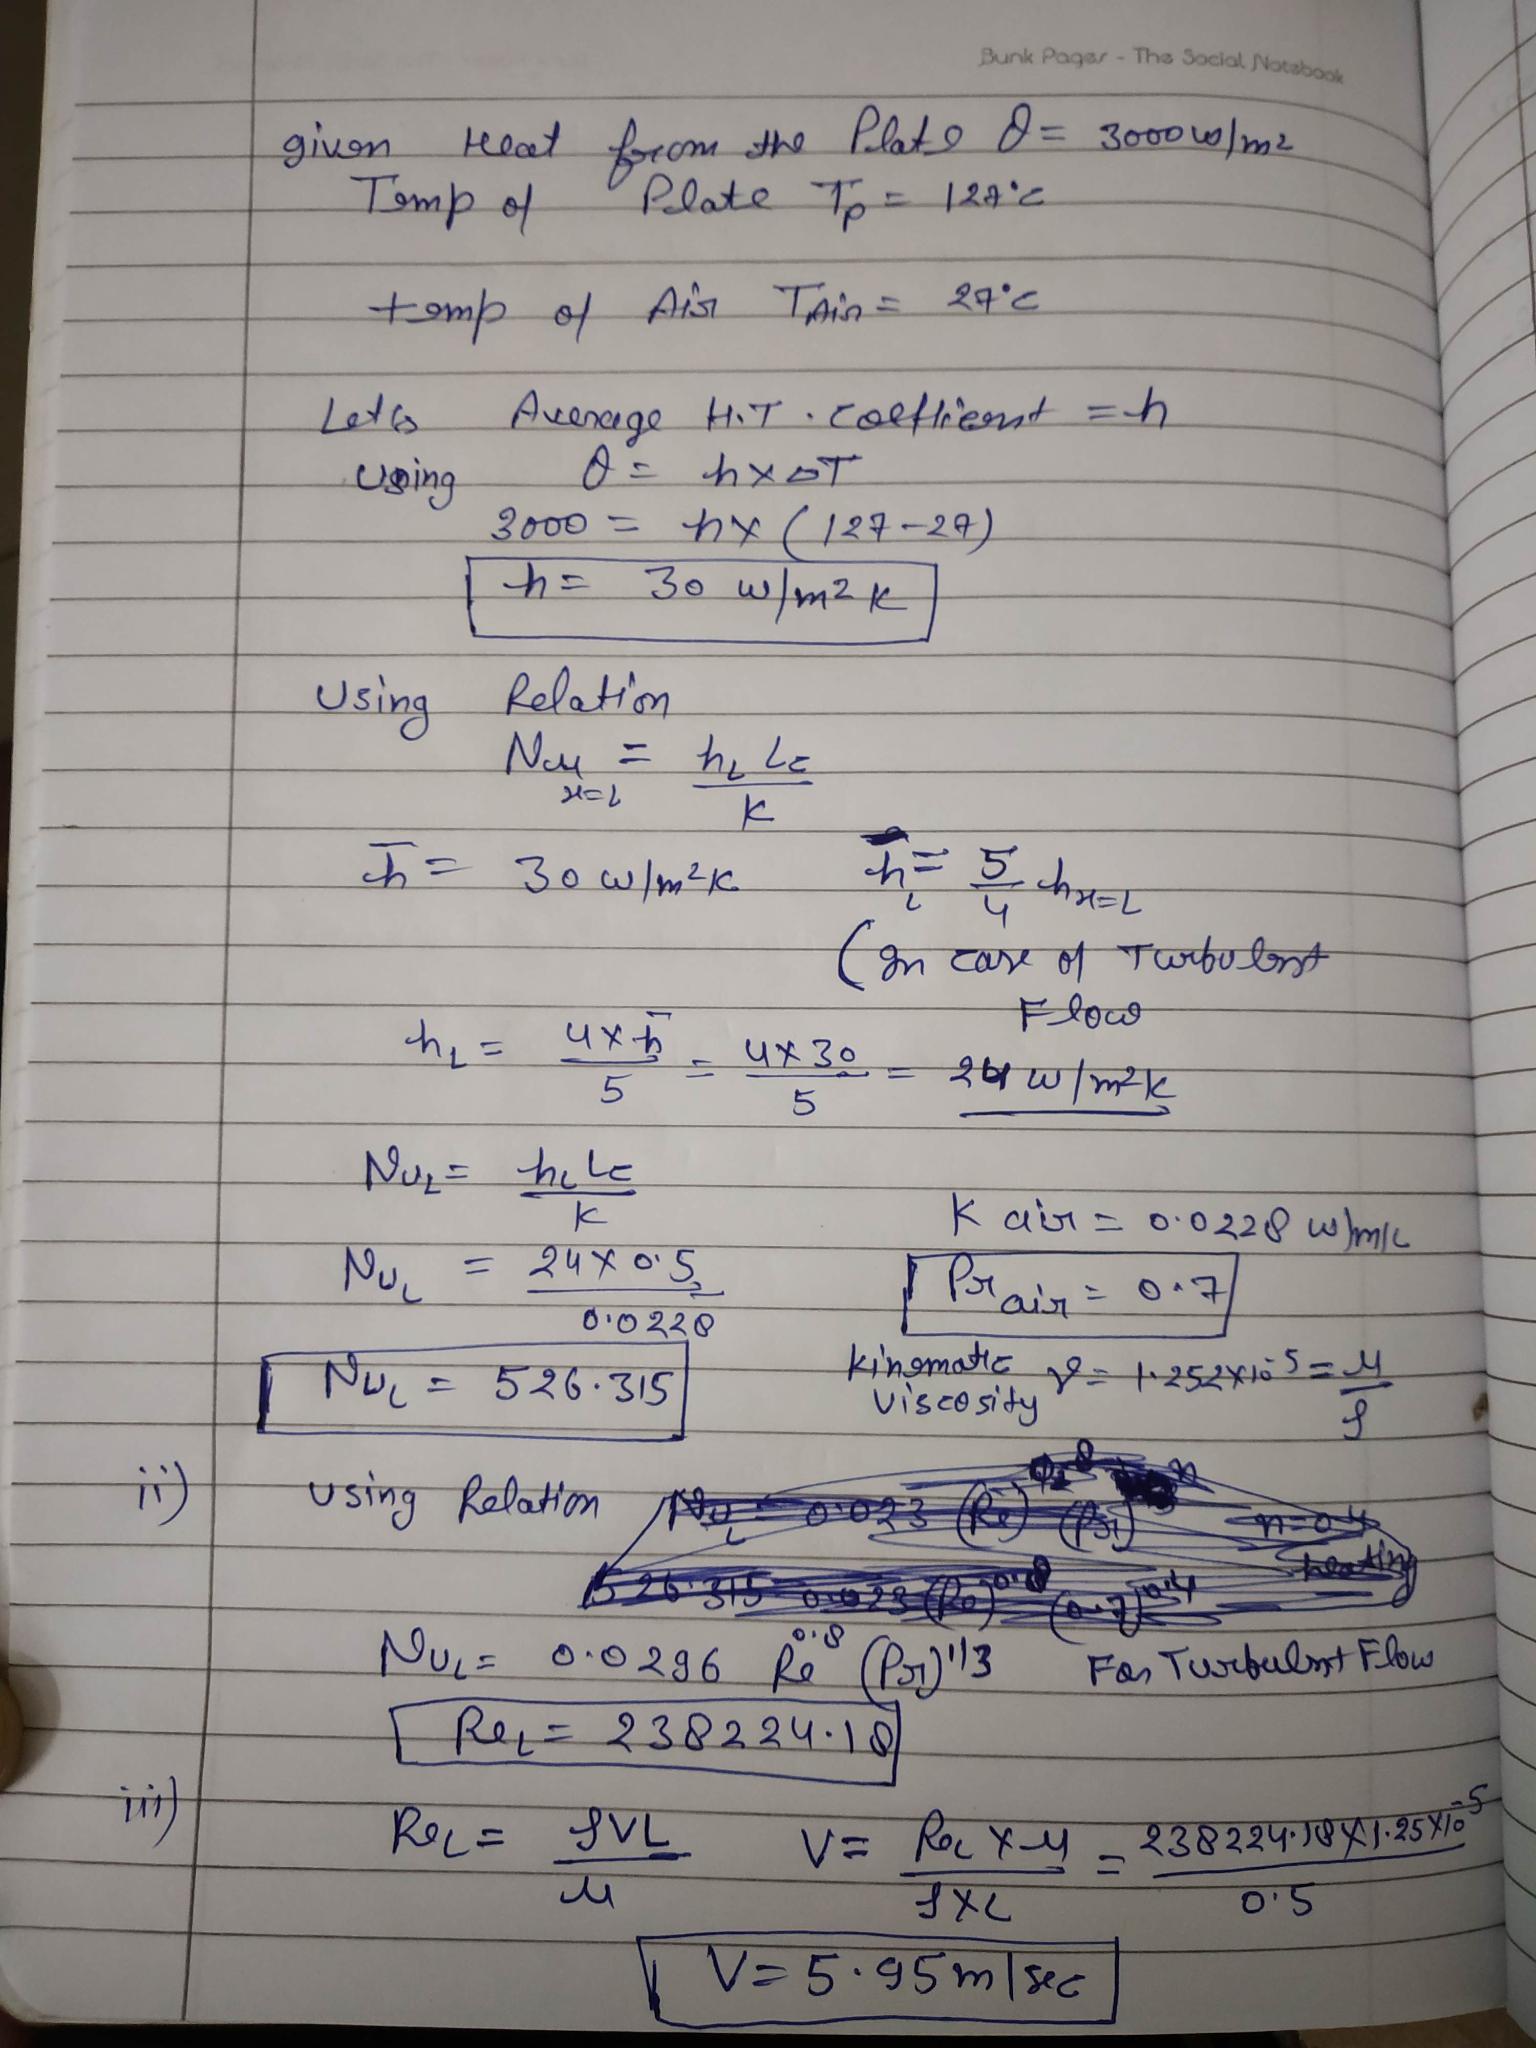 Bunk Pages - The Social Notebook
given Heat from the Plate Q = 3000 w/m2
Temp of Plate Tp = 127°c
temp of Air TAir = 27°c
Let's Average H.T. coefficient = h
Using Q = h×ΔT
3000 = h× (127-27)
h = 30 w/m2 K
Using Relation
Nu x=L = hL Lc / K
h̅ = 30 w/m²K h̅L = 5/4 hx=L
(In case of Turbulent
Flow
hL = 4×h̅ / 5 = 4×30 / 5 = 24 w/m²k
NuL = hL Lc / K
K air = 0.0228 w/mk
NuL = 24×0.5 / 0.0228
Pr air = 0.7
NuL = 526.315
Kinematic viscosity ν = 1.252×10-5 = μ/ρ
ii) Using Relation
NuL = 0.0296 Re0.8 (Pr)1/3 For Turbulent Flow
ReL = 238224.18
iii) ReL = ρVL / μ V = ReL × μ / ρ×L = 238224.18×1.25×10-5 / 0.5
V = 5.95 m/sec